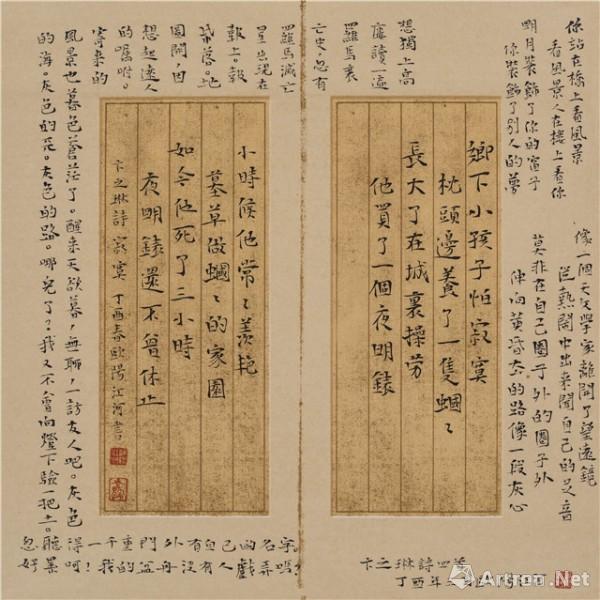 你站在橋上看風景
看風景人在樓上看你
明月裝飾了你的窗子
你裝飾了別人的夢
像一個天文學家離開了望遠鏡
從熱鬧中出來聞自己的足音
莫非在自己圈子外的圈子外
伸向黃昏去的路像一段灰心
鄉下小孩子怕寂寞
枕頭邊養了一隻蟈々
長大了在城裏操勞
他買了一個夜明錶
卞之琳詩四首
丁酉年
想獨上高
樓讀一遍
羅馬衰
亡史,忽有
羅馬滅亡
星出現在
報上。報
紙落。地
圖開,因
想起遠人
的囑咐。
寄來的
風景也暮色蒼茫了。醒來天欲暮,無聊,一訪友人吧。灰色
的海。灰色的天。灰色的路。哪兒了?我又不會向燈下驗一把土。
忽聽得一千重門外有自己的名字。
好累呵!我的盆舟沒有人戲弄嗎?
小時候他常々羡艳
墓草做蟈々的家園
如今他死了三小時
夜明錶還不曾休止
卞之琳詩 寂寞 丁酉春歐陽江河書